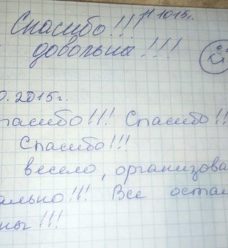 Спасибо!!!
довольна!!!
0.2015г.
пасибо!!! Спасибо!!
Спасибо!!!
весело, организова
ально!!! Все остал
ны!!!